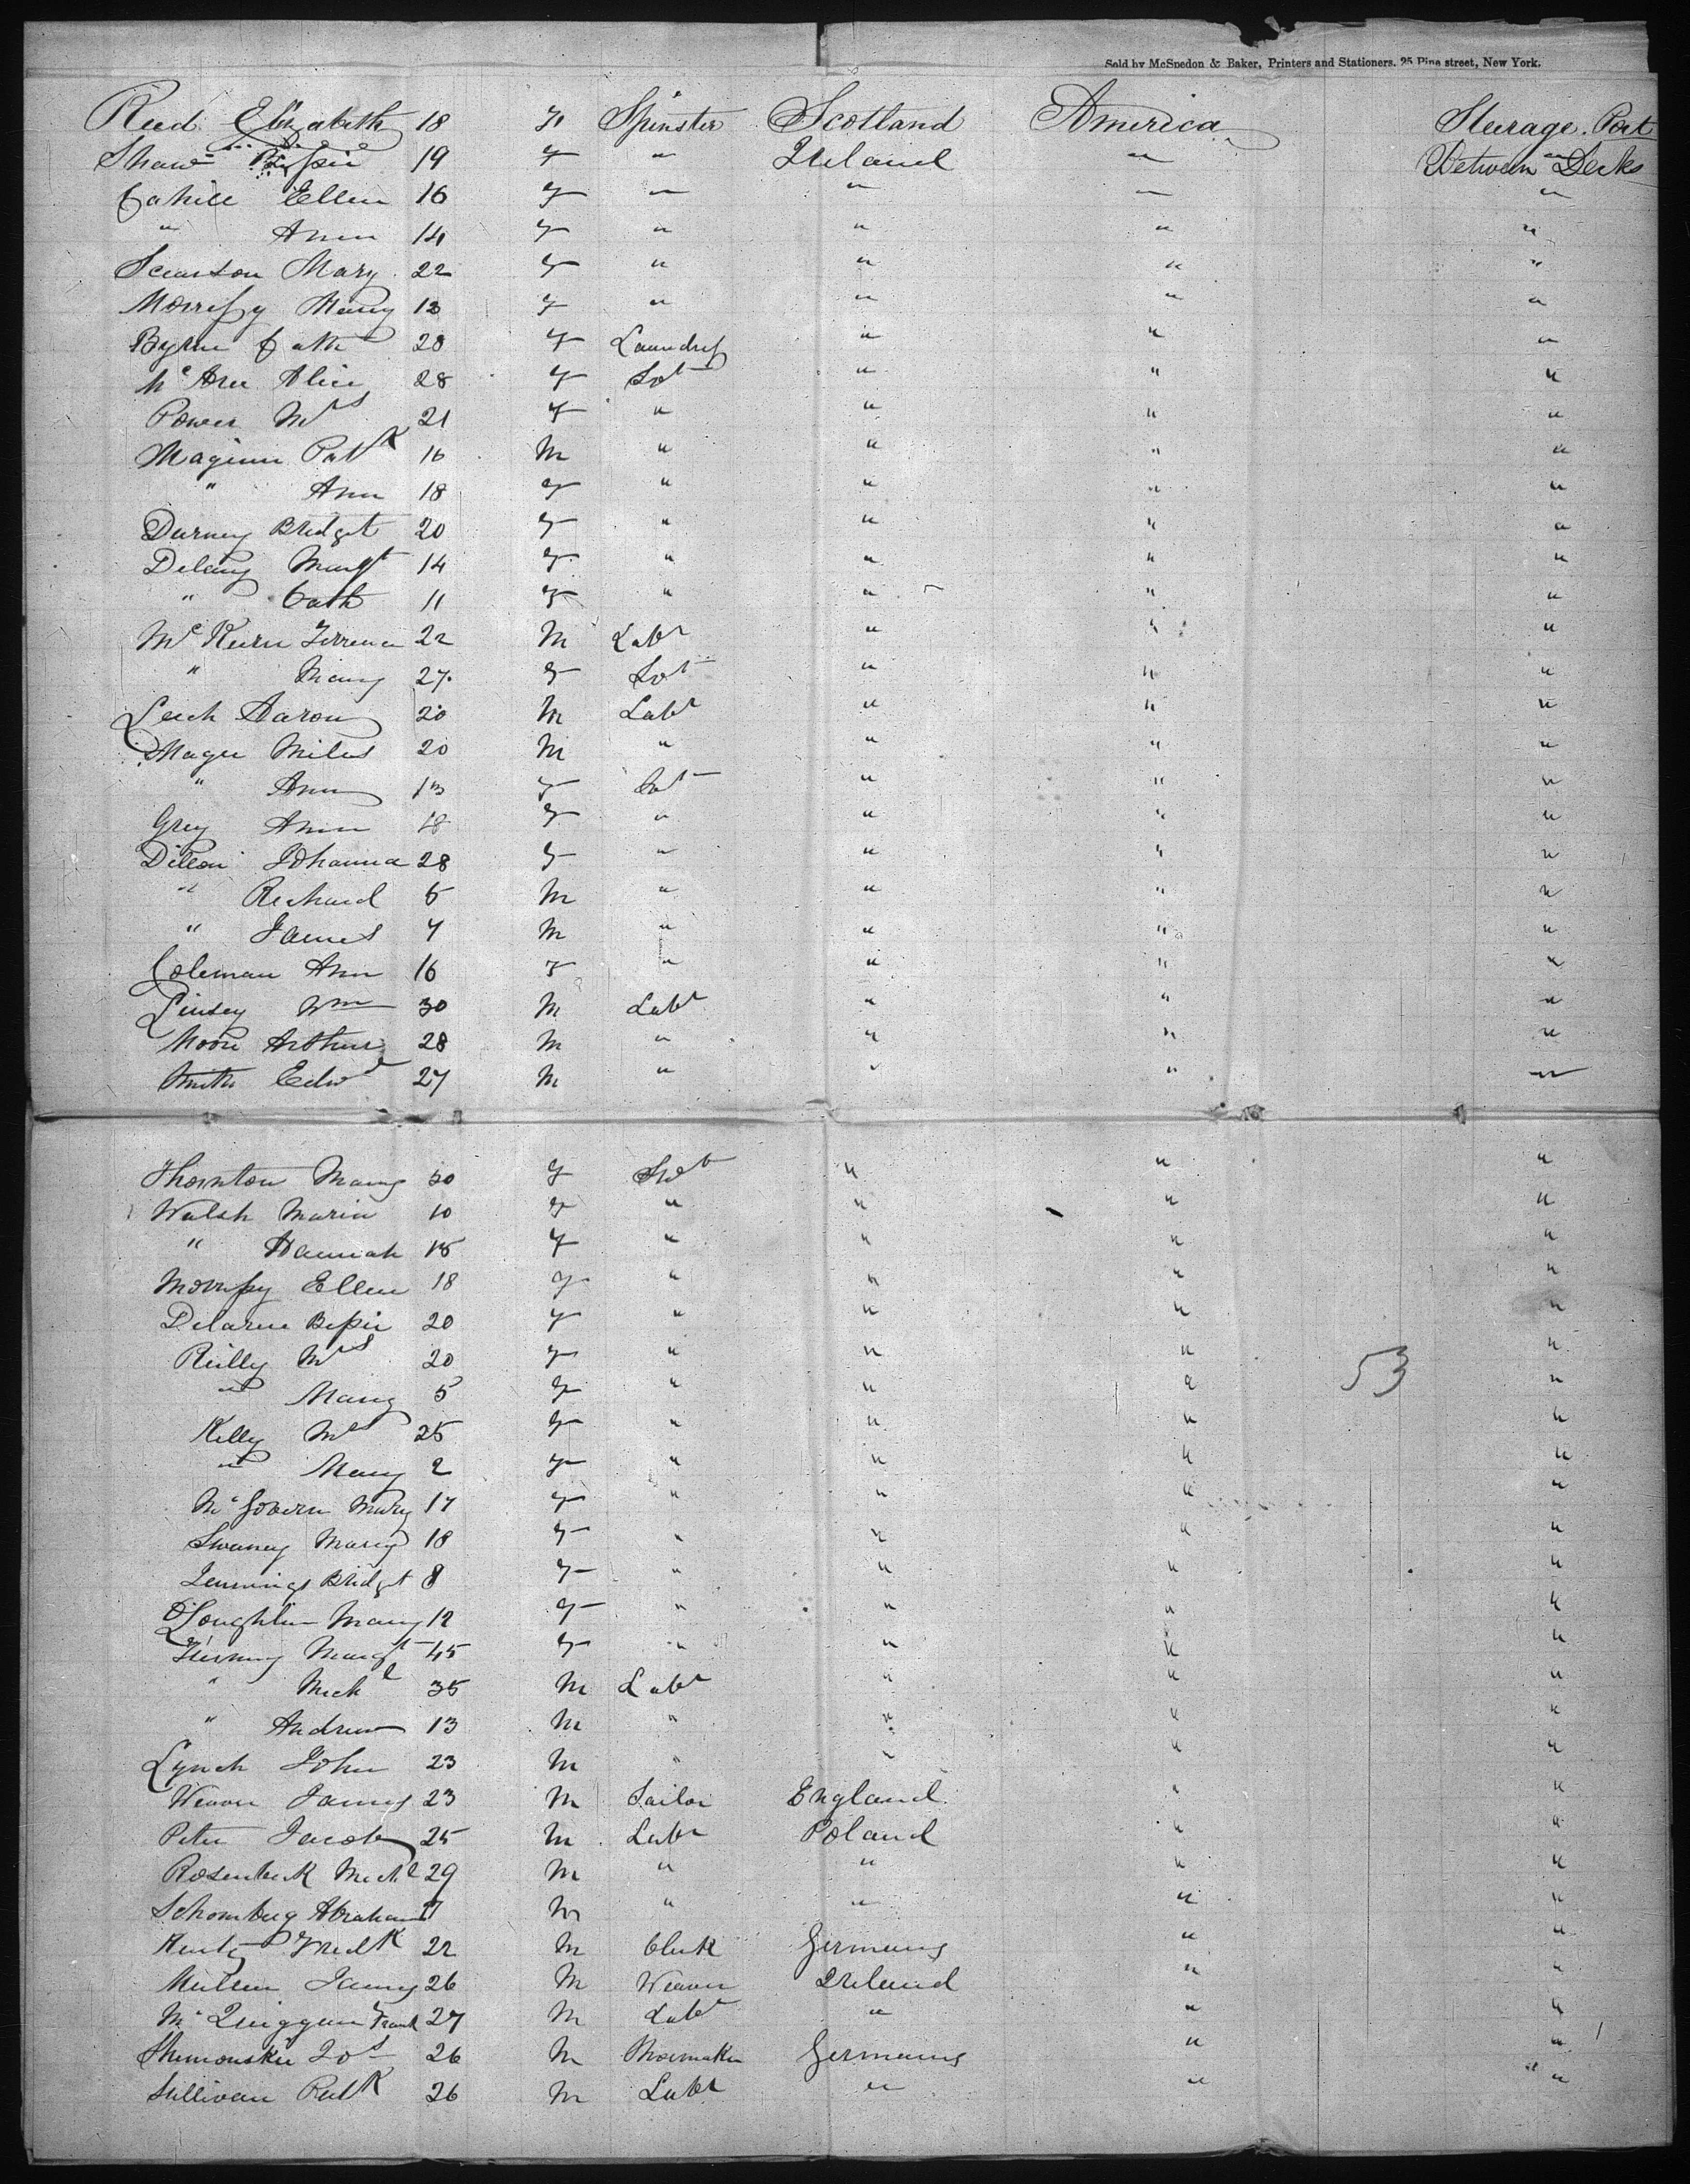 Sold by McSpedon & Baker, Printers and Stationers, 25 Pine street, New York.
Reed Elizabeth 18 F Spinster Scotland America Steerage. Port
Shaw Bessie 19 F " Ireland " Between Decks
Cahill Ellen 16 F " " " "
" Ann 14 F " " " "
Scanton Mary 22 F " " " "
Morrissy Mary 13 F " " " "
Byrne Cath 28 F Laundress " " "
McAree Alice 28 F " " "
Power Mrs 21 F " " " "
Maginn Patk 16 M " " " "
" Ann 18 F " " " "
Durney Bridget 20 F " " " "
Delany Margt 14 F " " " "
" Cath 11 F " " " "
McKeirn Terrence 22 M Labr " " "
" Mary 27 F " " "
Leech Aaron 20 M Labr " " "
Magee Miles 20 M " " " "
" Ann 13 F " " "
Grey Ann 18 F " " " "
Dillon Johanna 28 F " " " "
" Richard 6 M " " " "
" James 4 M " " " "
Coleman Ann 16 F " " " "
Linsey Wm 30 M Labr " " "
Moore Arthur 28 M " " " "
Smith Edwd 27 M " " " "
Thornton Mary 30 F " " "
Walsh Maria 10 F " " " "
" Hannah 15 F " " " "
Morrissy Ellen 18 F " " " "
Delarue Bessie 20 F " " " "
Reilly Mrs 20 F " " " "
" Mary 5 F " " " 53 "
Kelly Mrs 25 F " " " "
" Mary 2 F " " " "
McGovern Mary 17 F " " " "
Sweeney Mary 18 F " " " "
Jennings Bridget 8 F " " " "
O'Loughlin Mary 12 F " " " "
Margt 45 F " " " "
" Michl 35 M Labr " " "
" Andrew 13 M " " " "
Lynch John 23 M " " " "
Weaver James 23 M Sailor England " "
Peter Jacob 25 M Labr Poland " "
Rosenbeck Michl 29 M " " " "
Schomberg Abraham M " " " "
Fredk 22 M Clerk Germany " "
Mullen James 26 M Weaver Ireland " "
McQuiggan Frank 27 M Labr " " "
Shimonskie Jos 26 M Shoemaker Germany " "
Sullivan Patk 26 M Labr " " "